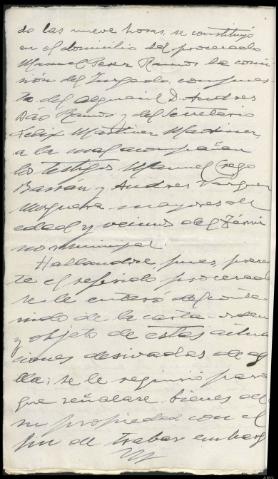 do las nueve horas, se constituyó
en el domicilio del procesado
Manuel Perez Ramos la comi
sión del Juzgado compues
ta del alguacil D. Andres
Díaz Ramos y del Secretario
Felix Martinez Martinez
a la cual acompañan
los testigos Manuel Crego
Bastán y Andres Vazquez
mayores de
edad y vecinos del Térmi
no municipal.
Hallandose, pues, presen
te el referido procesado
se le enteró del conte
nido de la carta-orden
y objeto de estas actua
ciones derivadas de a
lla; se le requirió para
que señalase bienes de
su propiedad con el
fin de trabar embarg